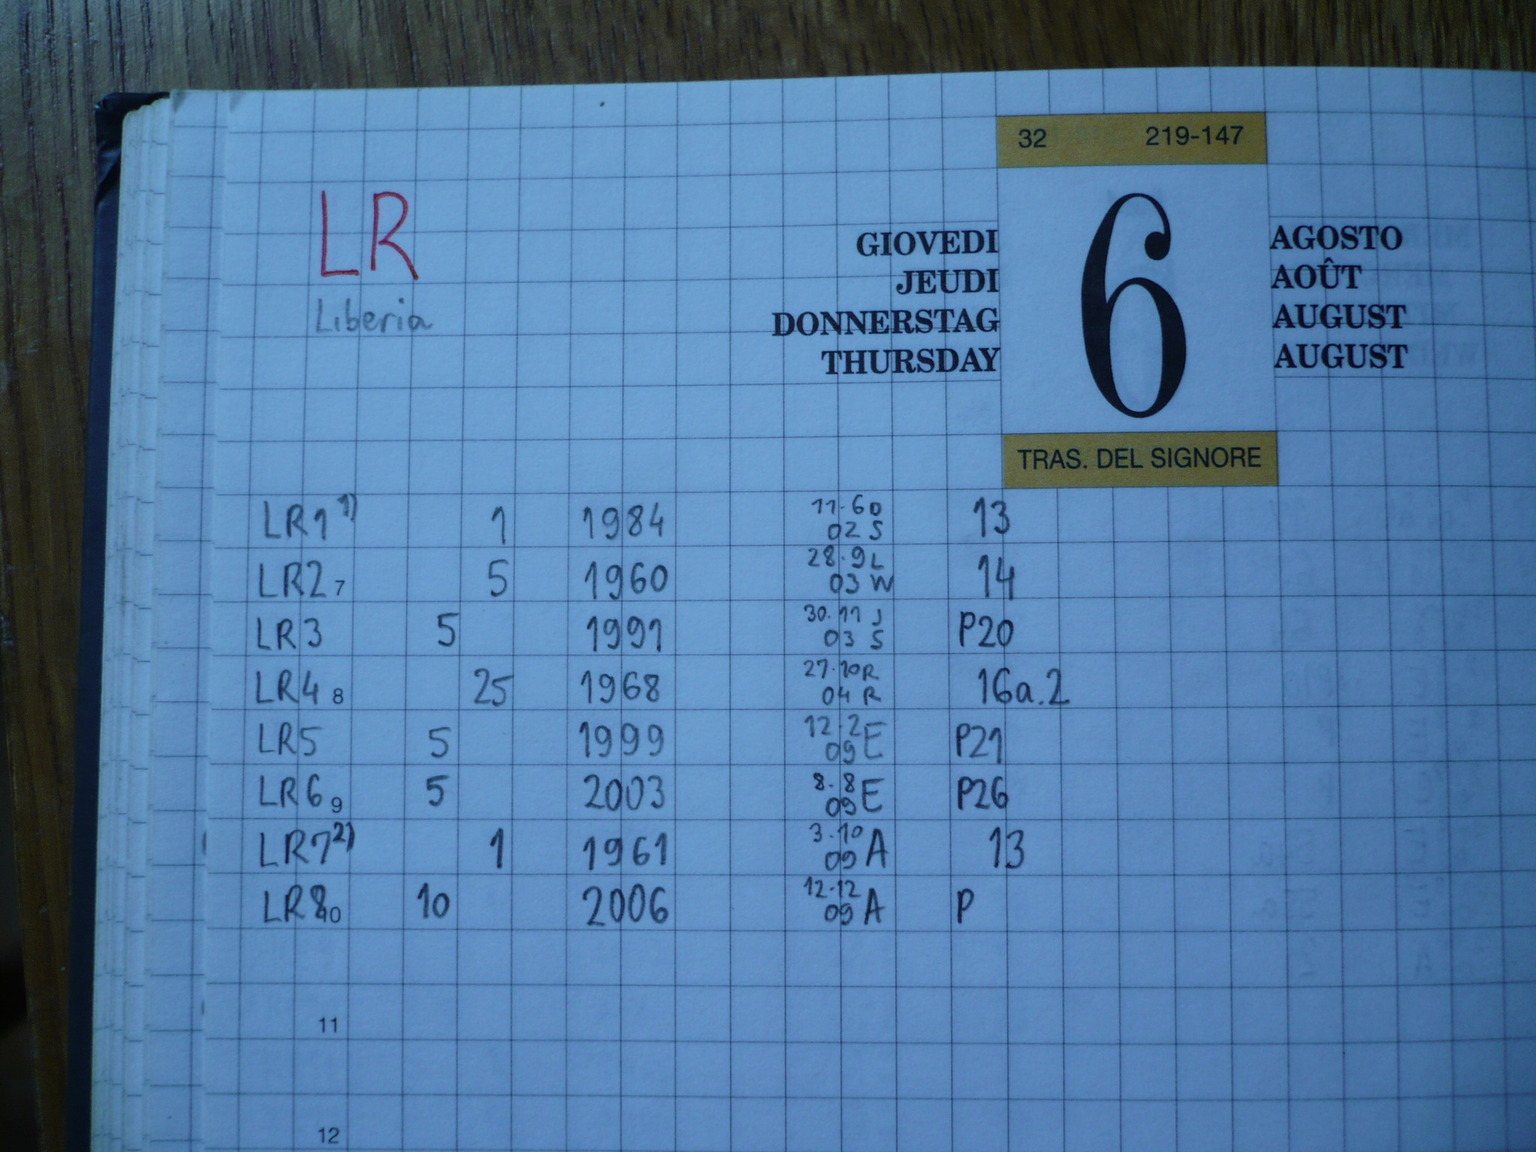 32 219-147
LR
Liberia
GIOVEDI
JEUDI
DONNERSTAG
THURSDAY
6
AGOSTO
AOÛT
AUGUST
AUGUST
TRAS. DEL SIGNORE
LR1 1) 1 1984 11·6 D 02 S 13
LR2 7 5 1960 28·9 L 03 W 14
LR3 5 1991 30·11 J 03 S P20
LR4 8 25 1968 27·10 R 04 R 16a.2
LR5 5 1999 12·2 09 E P21
LR6 9 5 2003 8·8 09 E P26
LR7 2) 1 1961 3·10 09 A 13
LR8 10 10 2006 12·12 09 A P
11
12